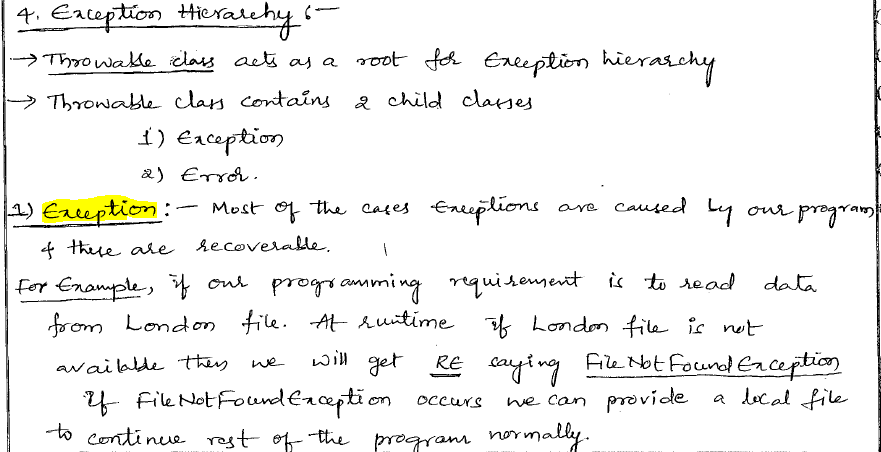 4. Exception Hierarchy :—
→ Throwable class acts as a root for Exception hierarchy
→ Throwable class contains 2 child classes
1) Exception
2) Error.
1) Exception :— Most of the cases Exceptions are caused by our program
& these are recoverable.
For Example, if our programming requirement is to read data
from London file. At runtime if London file is not
available then we will get RE saying FileNotFoundException
If FileNotFoundException occurs we can provide a local file
to continue rest of the program normally.